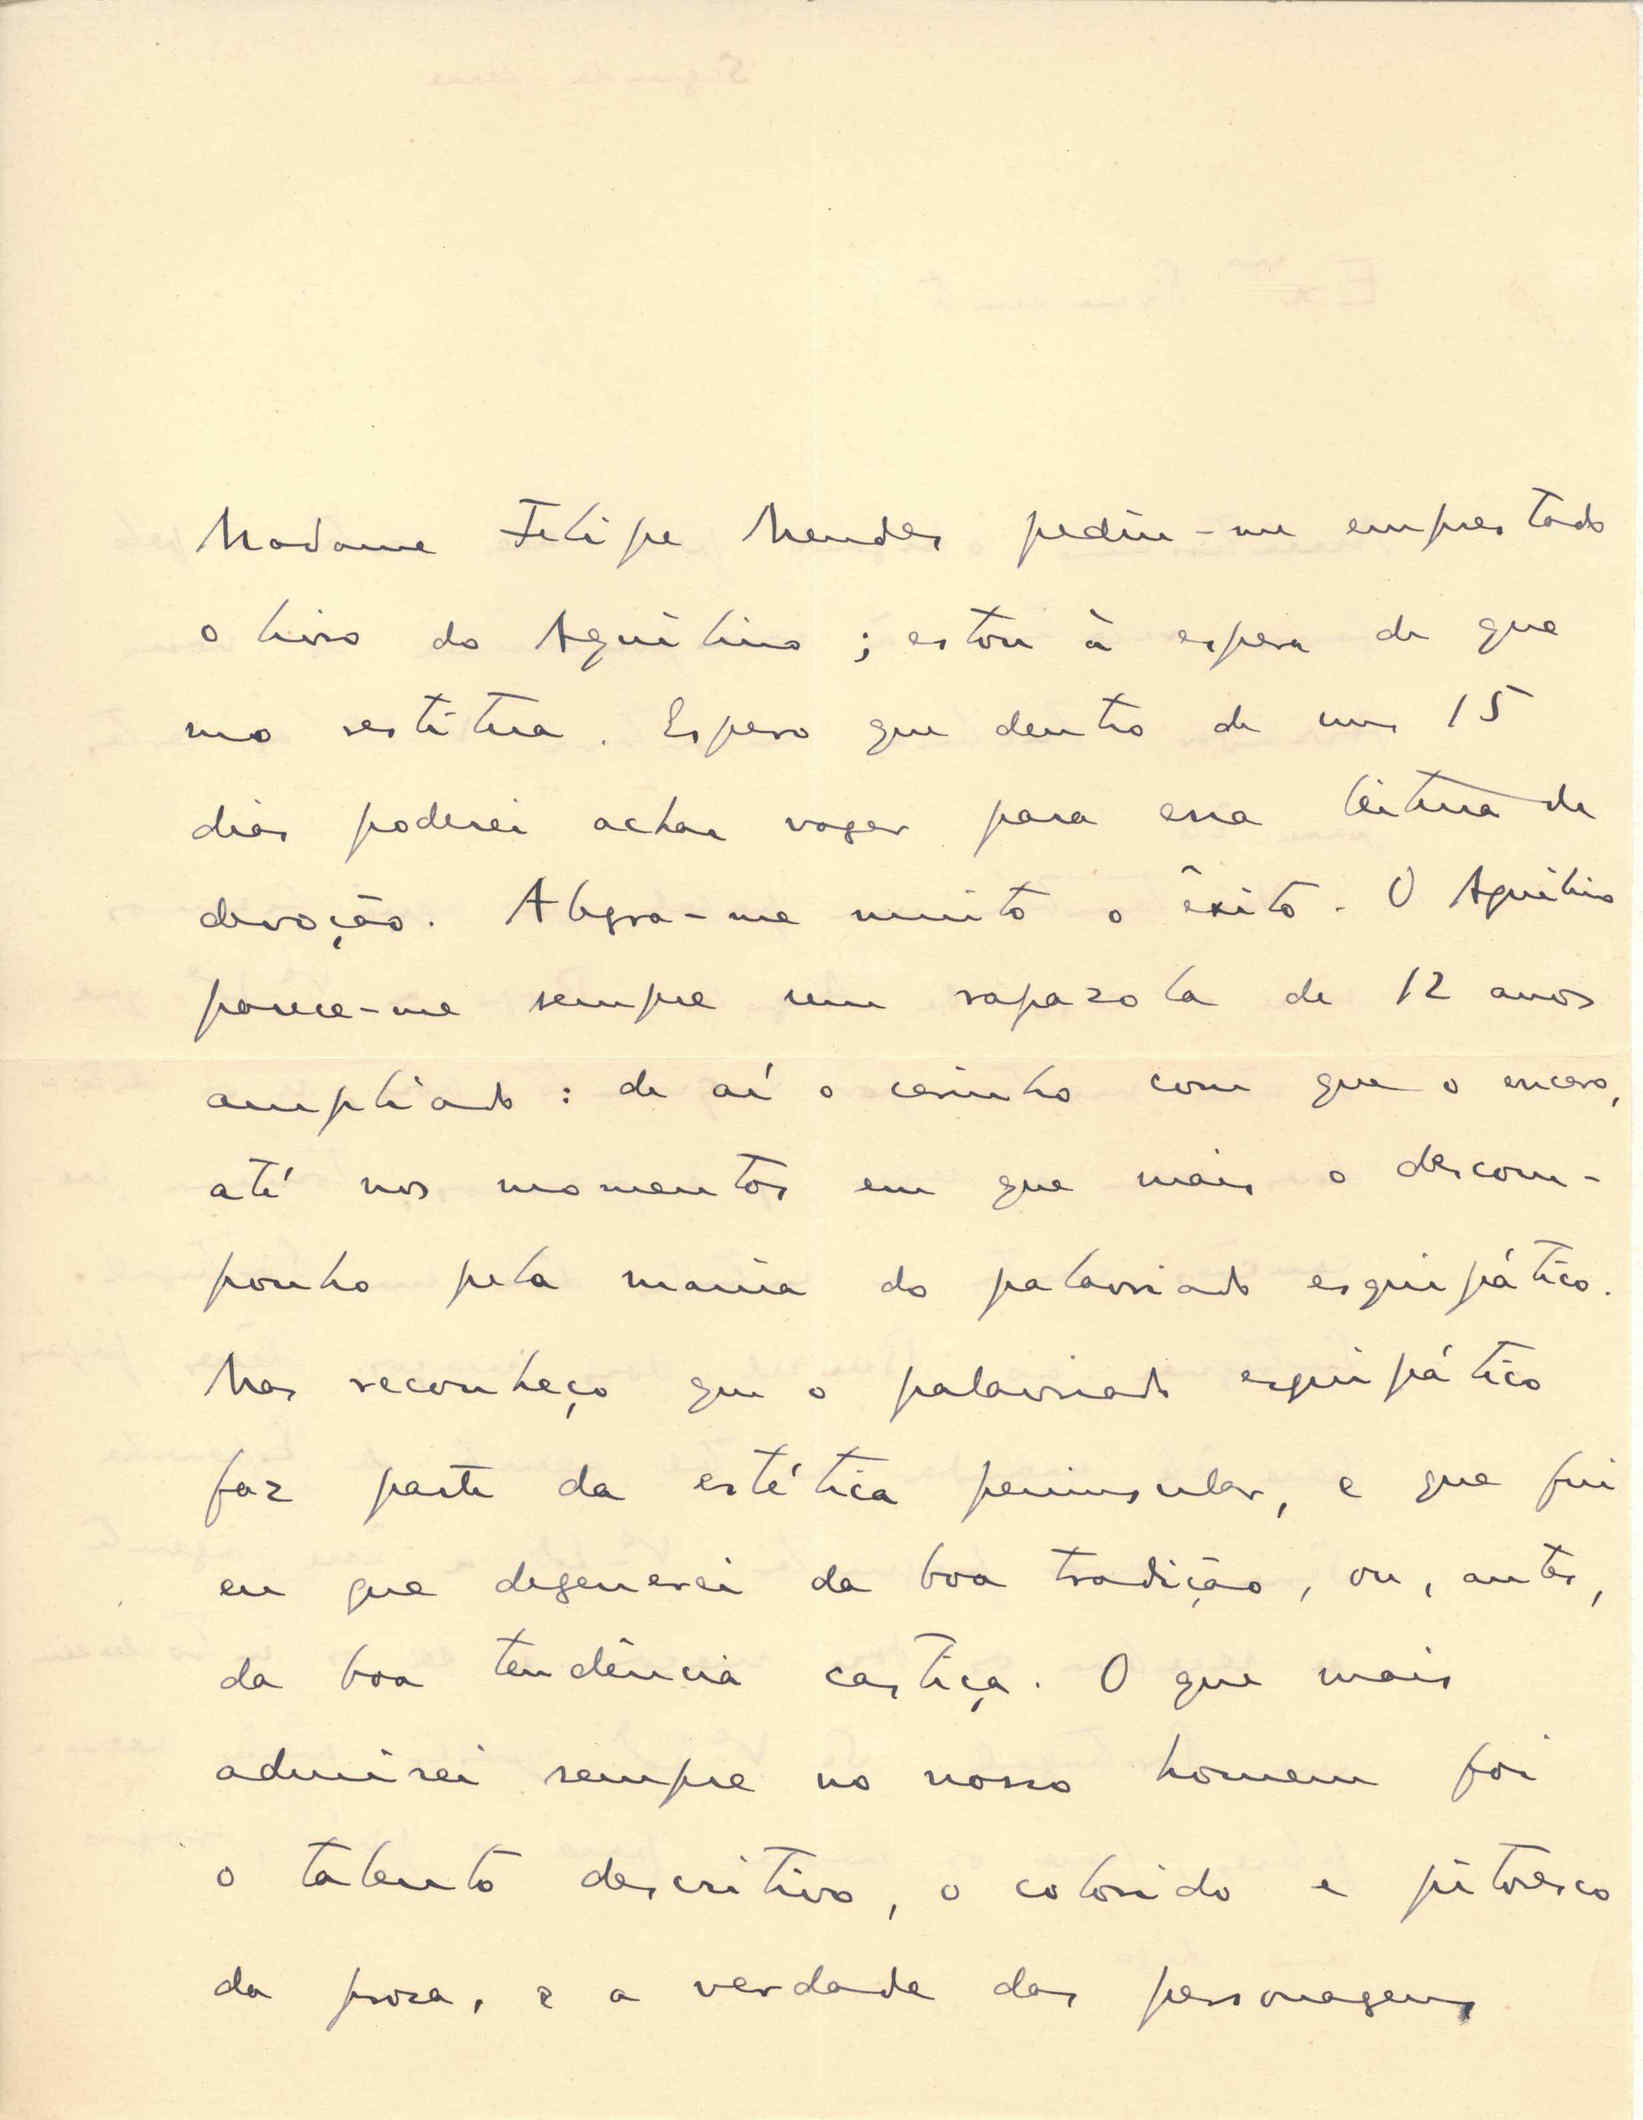 Madame Felipe Mendes pediu-me emprestado
o livro do Aquilino ; estou à espera de que
mo restitua. Espero que dentro de uns 15
dias poderei achar vagar para essa leitura de
devoção. Alegra-me muito o êxito. O Aquilino
parece-me sempre um rapazola de 12 anos
ampliado : de aí o carinho com que o encaro,
até nos momentos em que mais o descom-
ponho pela mania do palavriado esquipático.
Mas reconheço que o palavriado esquipático
faz parte da estética peninsular, e que fui
eu que degenerei da boa tradição, ou, antes,
da boa tendência castiça. O que mais
admirei sempre no nosso homem foi
o talento descritivo, o colorido e pitoresco
da prosa, e a verdade das personagens